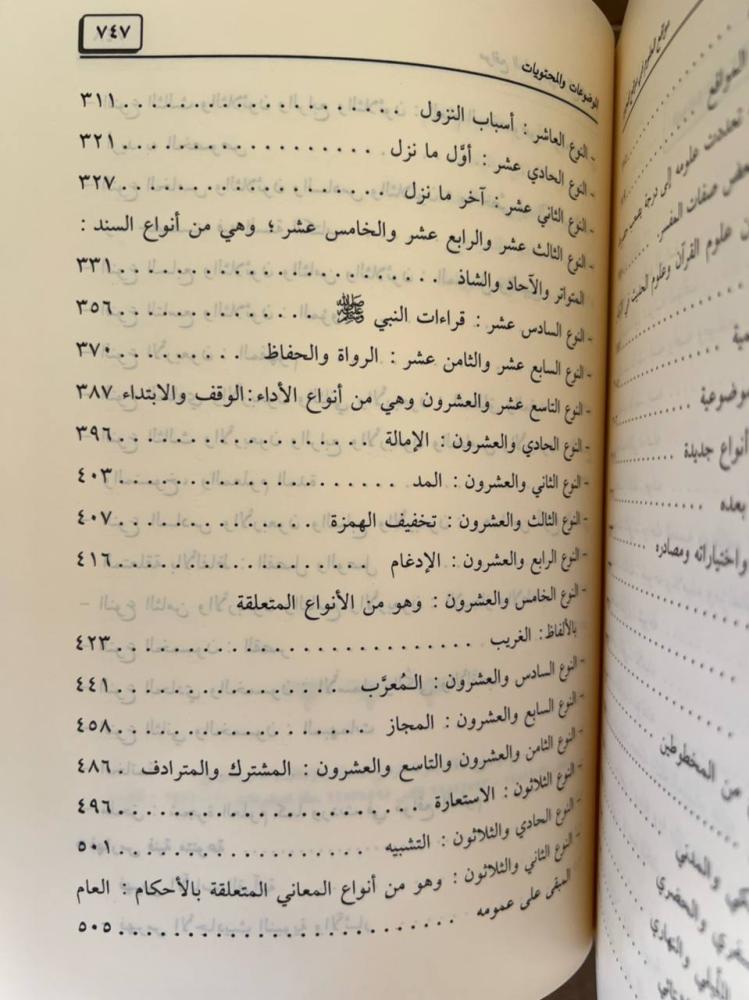 ٧٤٧
الموضوعات والمحتويات
- النوع العاشر : أسباب النزول . . . . . . . . . . . . . . . . . . ٣١١
- النوع الحادي عشر : أوَّل ما نزل . . . . . . . . . . . . . . . . ٣٢١
- النوع الثاني عشر : آخر ما نزل . . . . . . . . . . . . . . . . . ٣٢٧
- النوع الثالث عشر والرابع عشر والخامس عشر ؛ وهي من أنواع السند :
المتواتر والآحاد والشاذ . . . . . . . . . . . . . . . . . . . . ٣٣١
- النوع السادس عشر : قراءات النبي ﷺ . . . . . . . . . . . . . ٣٥٦
- النوع السابع عشر والثامن عشر : الرواة والحفاظ . . . . . . . . . ٣٧٠
- النوع التاسع عشر والعشرون وهي من أنواع الأداء: الوقف والابتداء ٣٨٧
- النوع الحادي والعشرون : الإمالة . . . . . . . . . . . . . . . . ٣٩٦
- النوع الثاني والعشرون : المد . . . . . . . . . . . . . . . . . . ٤٠٣
- النوع الثالث والعشرون : تخفيف الهمزة . . . . . . . . . . . . . ٤٠٧
- النوع الرابع والعشرون : الإدغام . . . . . . . . . . . . . . . . ٤١٦
- النوع الخامس والعشرون : وهو من الأنواع المتعلقة
بالألفاظ: الغريب . . . . . . . . . . . . . . . . . . . . . . . ٤٢٣
- النوع السادس والعشرون : المُعرَّب . . . . . . . . . . . . . . . ٤٤١
- النوع السابع والعشرون : المجاز . . . . . . . . . . . . . . . . . ٤٥٨
- النوع الثامن والعشرون والتاسع والعشرون : المشترك والمترادف . ٤٨٦
- النوع الثلاثون : الاستعارة . . . . . . . . . . . . . . . . . . . ٤٩٦
- النوع الحادي والثلاثون : التشبيه . . . . . . . . . . . . . . . . ٥٠١
- النوع الثاني والثلاثون : وهو من أنواع المعاني المتعلقة بالأحكام : العام
المبقى على عمومه . . . . . . . . . . . . . . . . . . . . . . . ٥٠٥
المواقع
تعددت علومه إلى درجة
بعض صفات المفسر
علوم القرآن وعلوم الحديث في
موضوعية
أنواع جديدة
بعده
واختياراته ومصادره
من المخطوطين
والمدني
والحضري
والنهاري